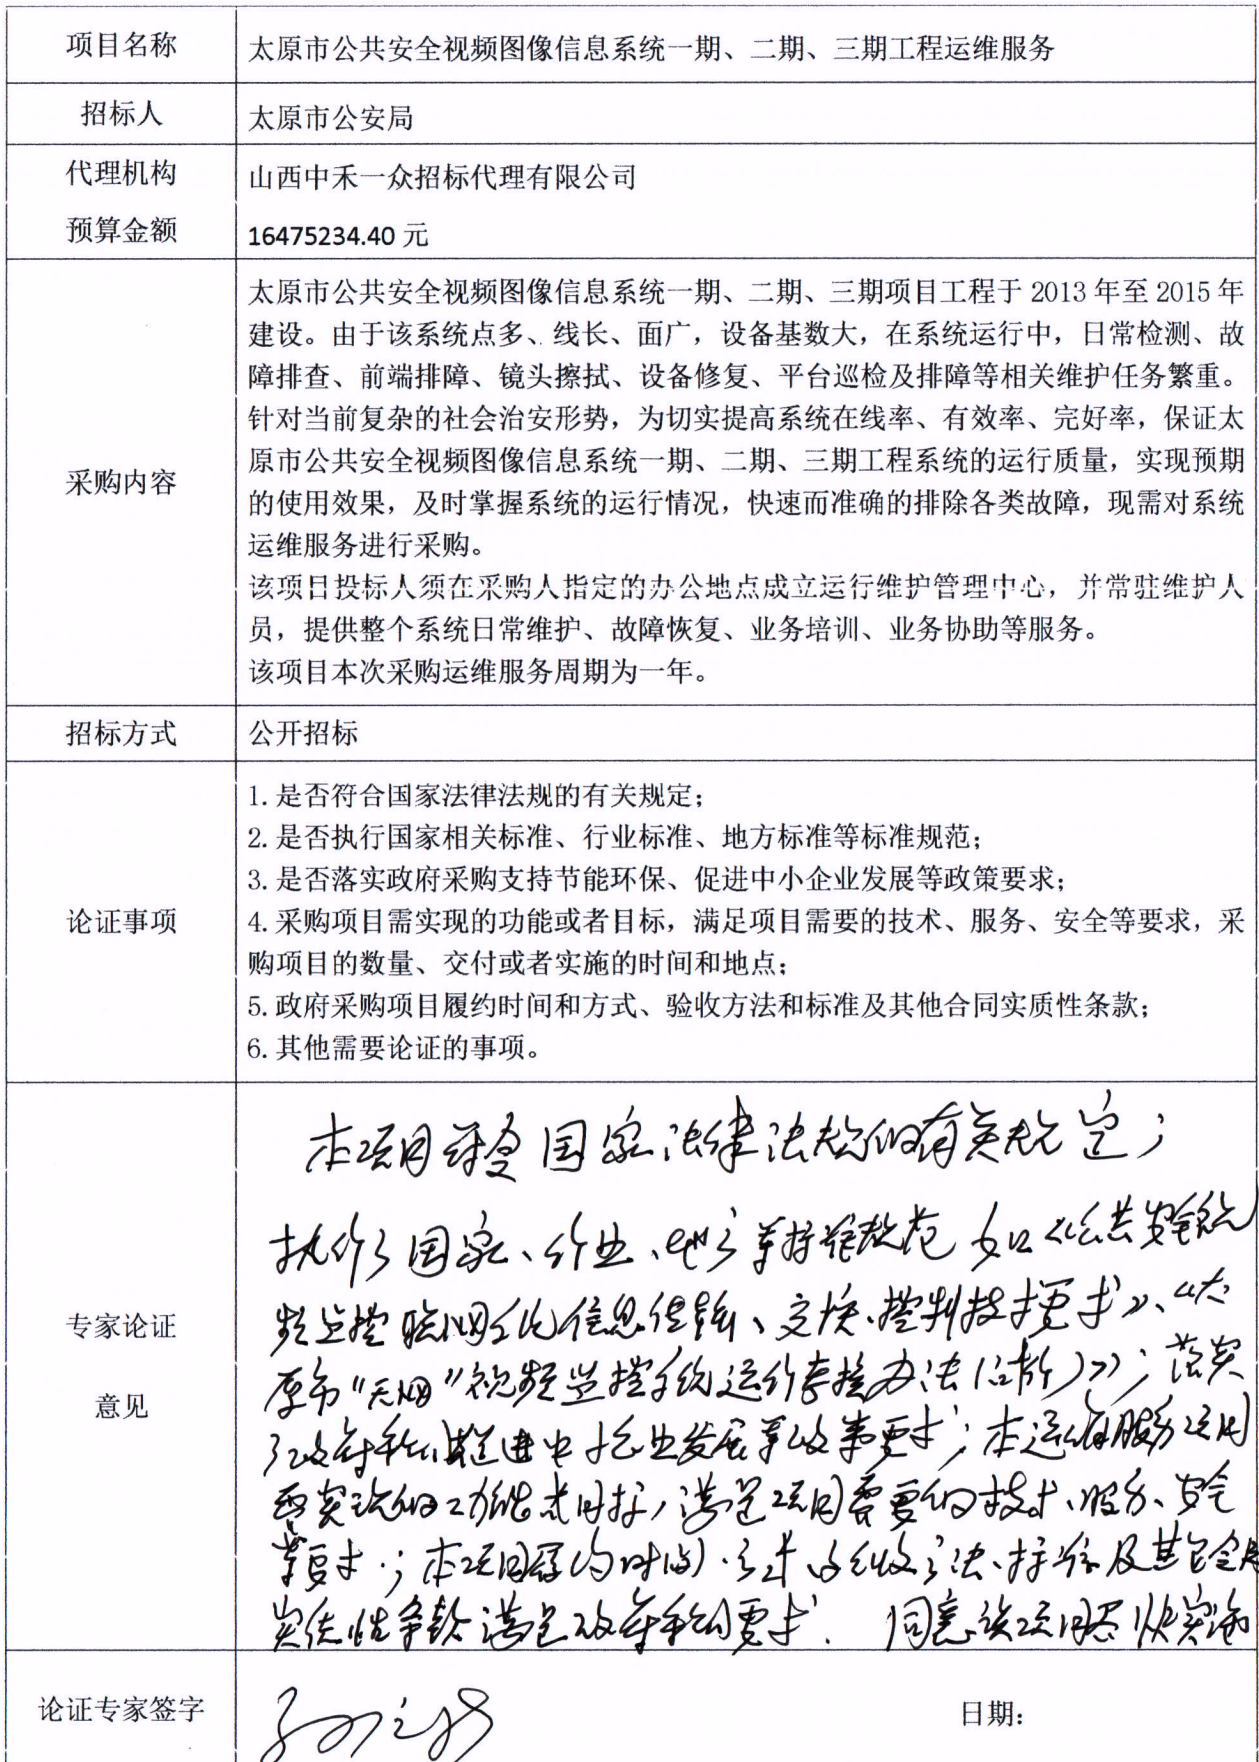 项目名称 太原市公共安全视频图像信息系统一期、二期、三期工程运维服务
招标人 太原市公安局
代理机构 山西中禾一众招标代理有限公司
预算金额 16475234.40 元
太原市公共安全视频图像信息系统一期、二期、三期项目工程于 2013 年至 2015 年
建设。由于该系统点多、线长、面广，设备基数大，在系统运行中，日常检测、故
障排查、前端排障、镜头擦拭、设备修复、平台巡检及排障等相关维护任务繁重。
针对当前复杂的社会治安形势，为切实提高系统在线率、有效率、完好率，保证太
原市公共安全视频图像信息系统一期、二期、三期工程系统的运行质量，实现预期
采购内容
的使用效果，及时掌握系统的运行情况，快速而准确的排除各类故障，现需对系统
运维服务进行采购。
该项目投标人须在采购人指定的办公地点成立运行维护管理中心，并常驻维护人
员，提供整个系统日常维护、故障恢复、业务培训、业务协助等服务。
该项目本次采购运维服务周期为一年。
招标方式 公开招标
1. 是否符合国家法律法规的有关规定；
2. 是否执行国家相关标准、行业标准、地方标准等标准规范；
3. 是否落实政府采购支持节能环保、促进中小企业发展等政策要求；
论证事项 4. 采购项目需实现的功能或者目标，满足项目需要的技术、服务、安全等要求，采
购项目的数量、交付或者实施的时间和地点；
5. 政府采购项目履约时间和方式、验收方法和标准及其他合同实质性条款；
6. 其他需要论证的事项。
本项目符合国家法律法规的有关规定；
执行了国家、行业、地方等标准规范 如《公共安全视
专家论证
频监控联网系统信息传输、交换、控制技术要求》、《太
意见
原市“天网”视频监控系统运行考核办法（暂行）》；落实
了政府采购促进中小企业发展等政策要求；本运维服务项目
要实现的功能或目标，满足项目需要的技术、服务、安全
等要求；本项目履约时间、方式、验收方法、标准及其它合同
实质性条款满足政府采购要求. 同意该项目尽快实施
论证专家签字
日期：